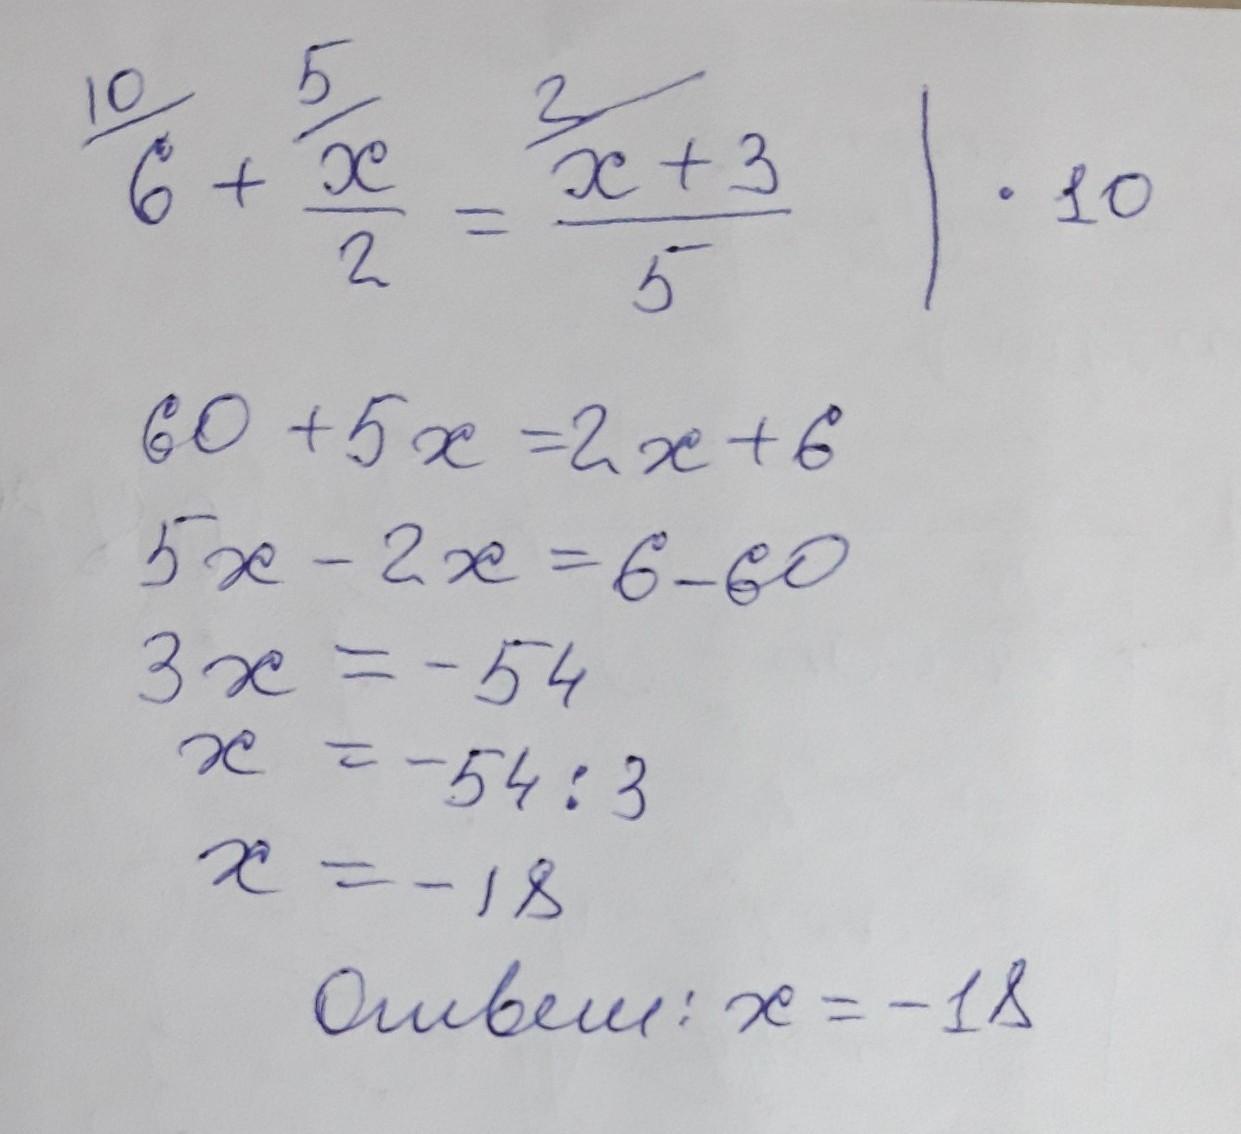 10/ 6 + 5/ x/2 = 2/ (x + 3)/5 | · 10
60 + 5x = 2x + 6
5x - 2x = 6 - 60
3x = -54
x = -54 : 3
x = -18
Ответ: x = -18